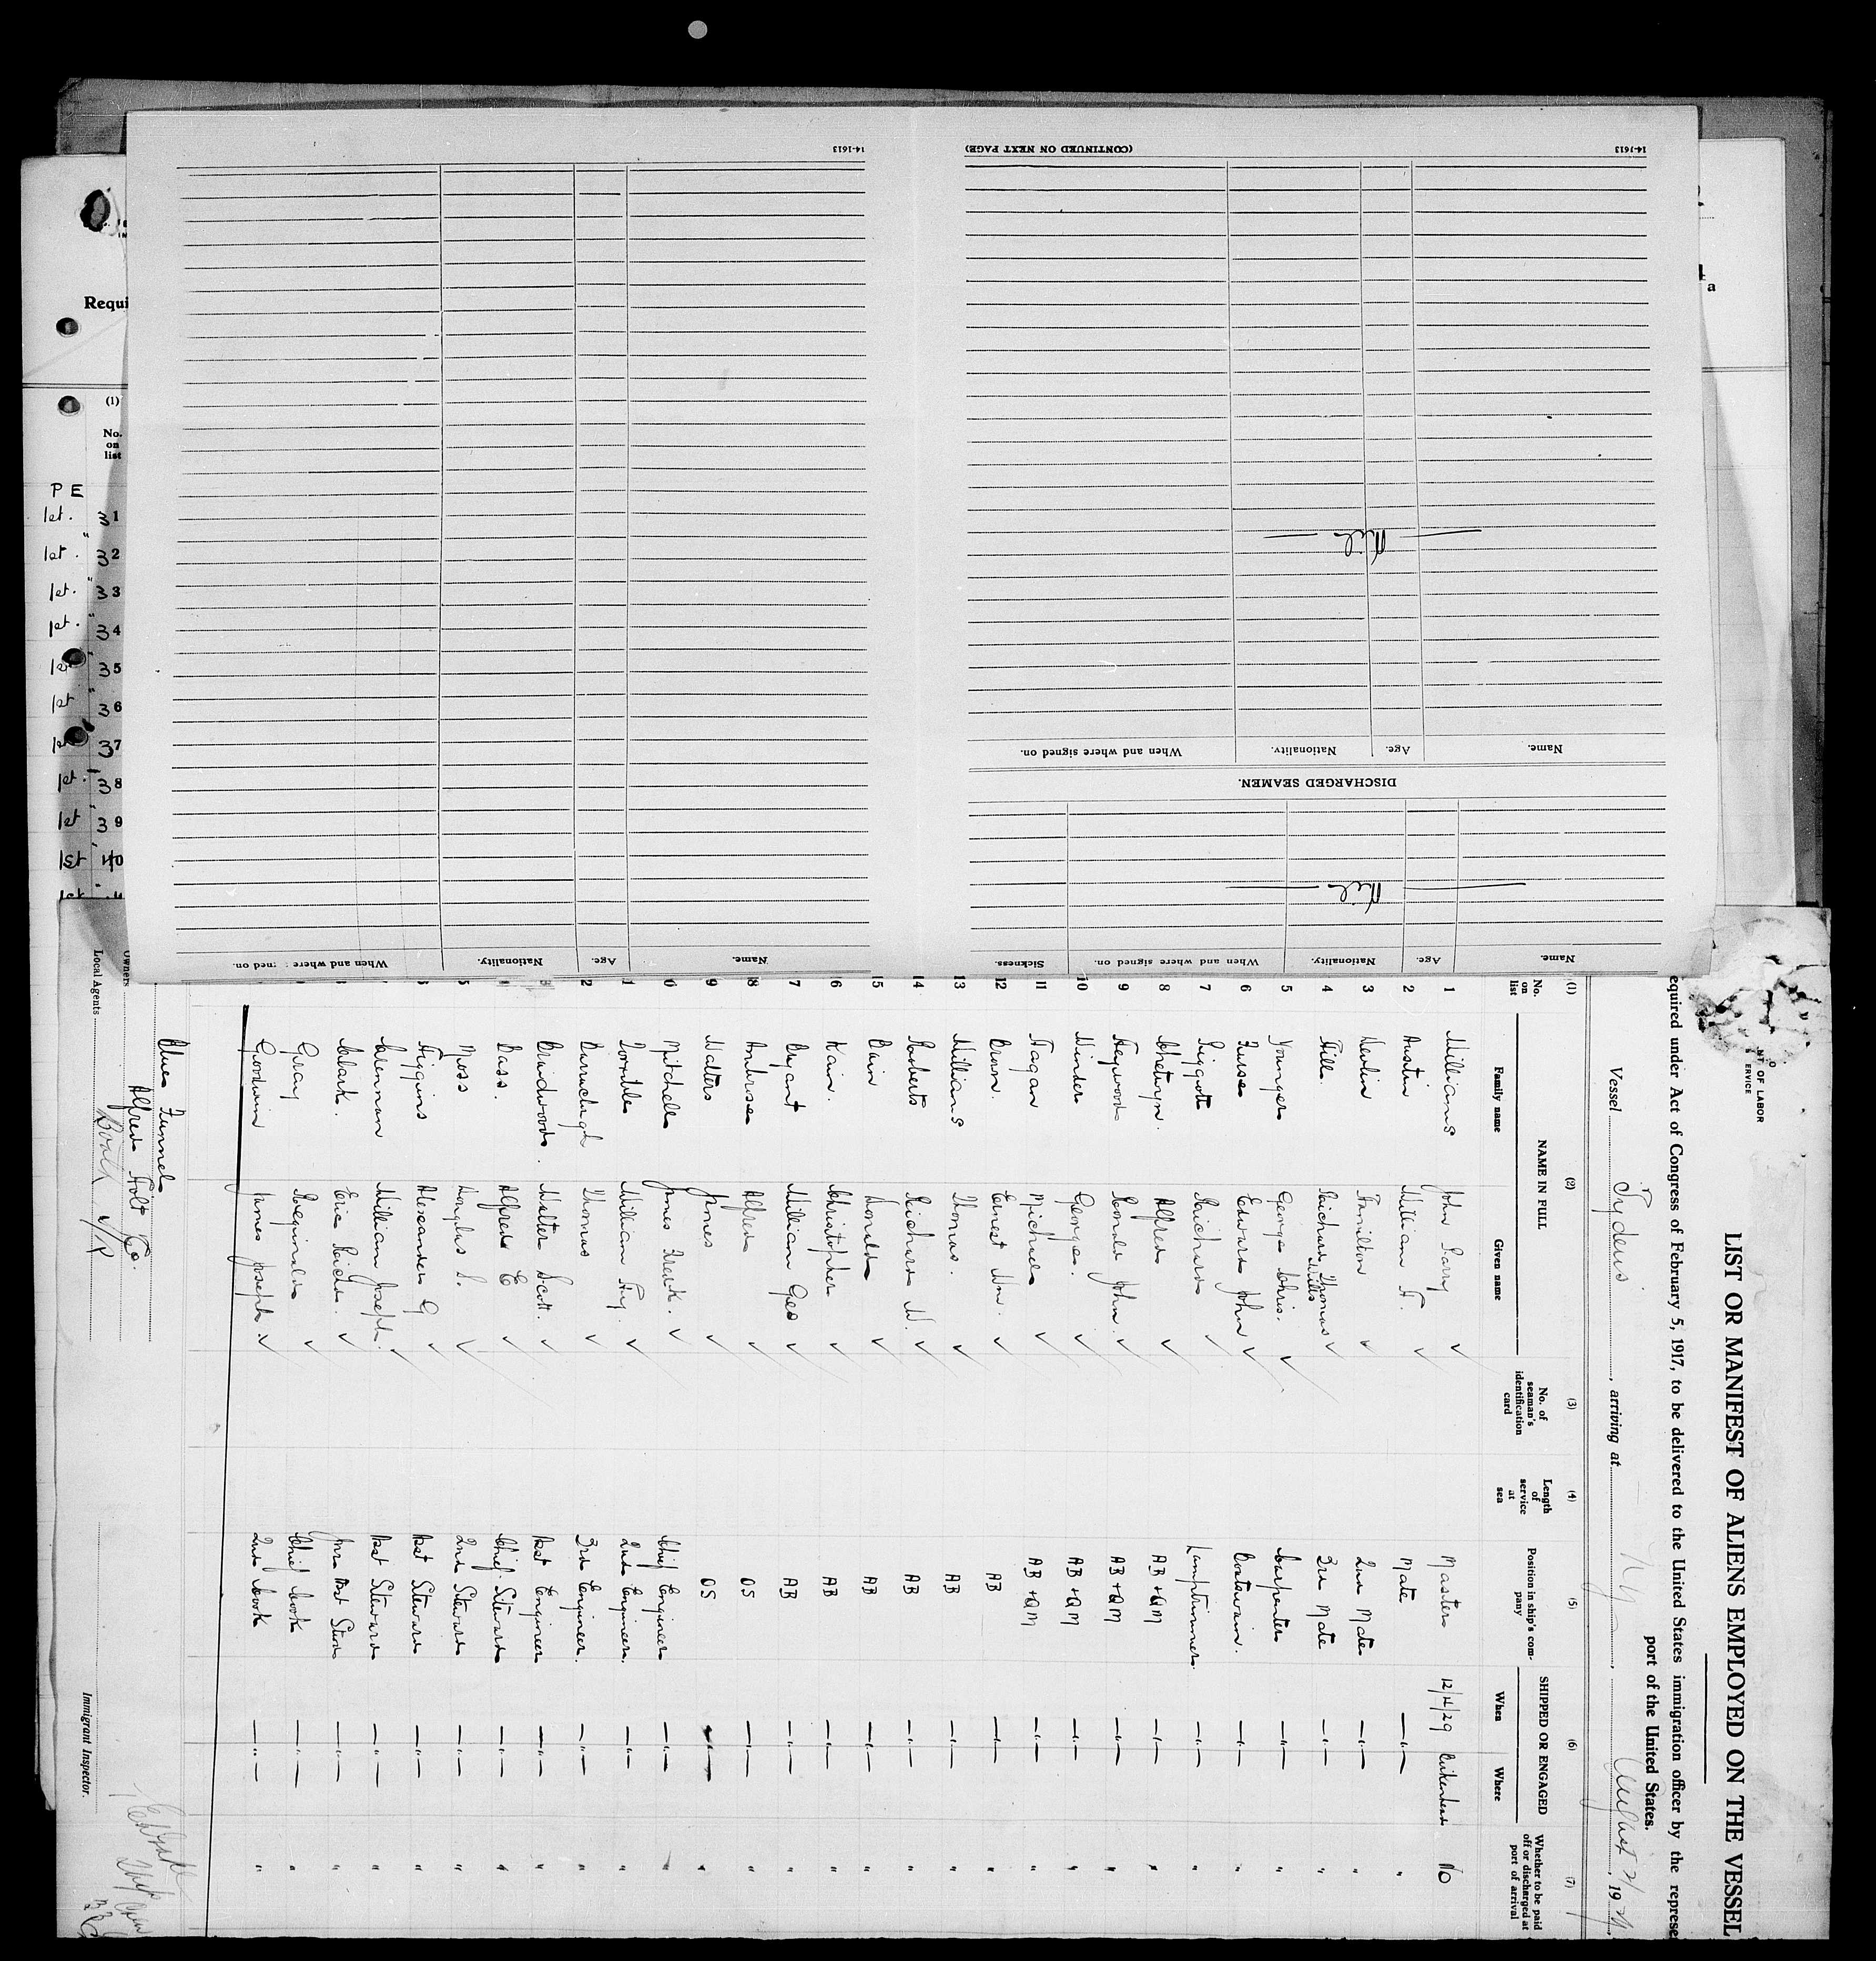 14-1613
(CONTINUED ON NEXT PAGE)
14-1613
Nil
Name. Age. Nationality. When and where signed on.
DISCHARGED SEAMEN.
Nil
Name. Age. Nationality. When and where signed on. Sickness.
Name. Age. Nationality. When and where
Requi
(1)
No. on list
P E
1st. 31
1st. " 32
1st. " 33
1st. " 34
1st " 35
1st " 36
1st 37
1st. 38
1st " 39
1st 40
a
OF LABOR
ERVICE
LIST OR MANIFEST OF ALIENS EMPLOYED ON THE VESSEL
equired under Act of Congress of February 5, 1917, to be delivered to the United States immigration officer by the represe
port of the United States.
Vessel Tydeus, arriving at N Y, August 21, 1929
(1) (2) (3) (4) (5) (6) (7)
No. on list NAME IN FULL No. of seaman's identification card Length of service at sea Position in ship's company SHIPPED OR ENGAGED Whether to be paid off or discharged at port of arrival
Family name Given name When Where
1 Williams John Parry Master 12/4/29 Birkenhead No
2 Austin William H. Mate — " — "
3 Devlin Hamilton 2nd Mate — " — "
4 Hill Richard Thomas Wills 3rd Mate — " — "
5 Younger George Chris. Carpenter — " — "
6 Furse Edward John Boatswain. — " — "
7 Piggott Richard Lamptrimmer. — " — "
8 Chetwyn. Alfred AB + QM — " — "
9 Heywood Ronald John. AB + QM — " — "
10 Minder George. AB + QM — " — "
11 Fagan Michael AB + QM — " — "
12 Brown. Ernest Wm. AB — " — "
13 Williams Thomas. AB — " — "
14 Roberts Richard W. AB — " — "
15 Bain Donald AB — " — "
6 Kain. Christopher AB — " — "
7 Bryant William Geo AB — " — "
8 Ambrose Alfred OS — " — "
9 Walters James OS — " — "
0 Mitchell James Fredk. Chief Engineer — " — "
1 William Hy. 2nd Engineer. — " — "
2 Thomas 3rd Engineer. — " — "
Braidwood. Walter Scott. Asst Engineer — " — "
Bass. Alfred E Chief Steward — " — "
Moss Douglas S. 2nd Steward — " — "
Higgins Alexander G Asst Steward — " — "
Brennan William Joseph. Asst Steward — " — "
Clark. Eric Richd. — " — "
Gray Reginald Chief Cook — " — "
Goodwin James Joseph. 2nd Cook — " — "
Blue Funnel
Owners Alfred Holt & Co.
Local Agents Booth
Immigrant Inspector.